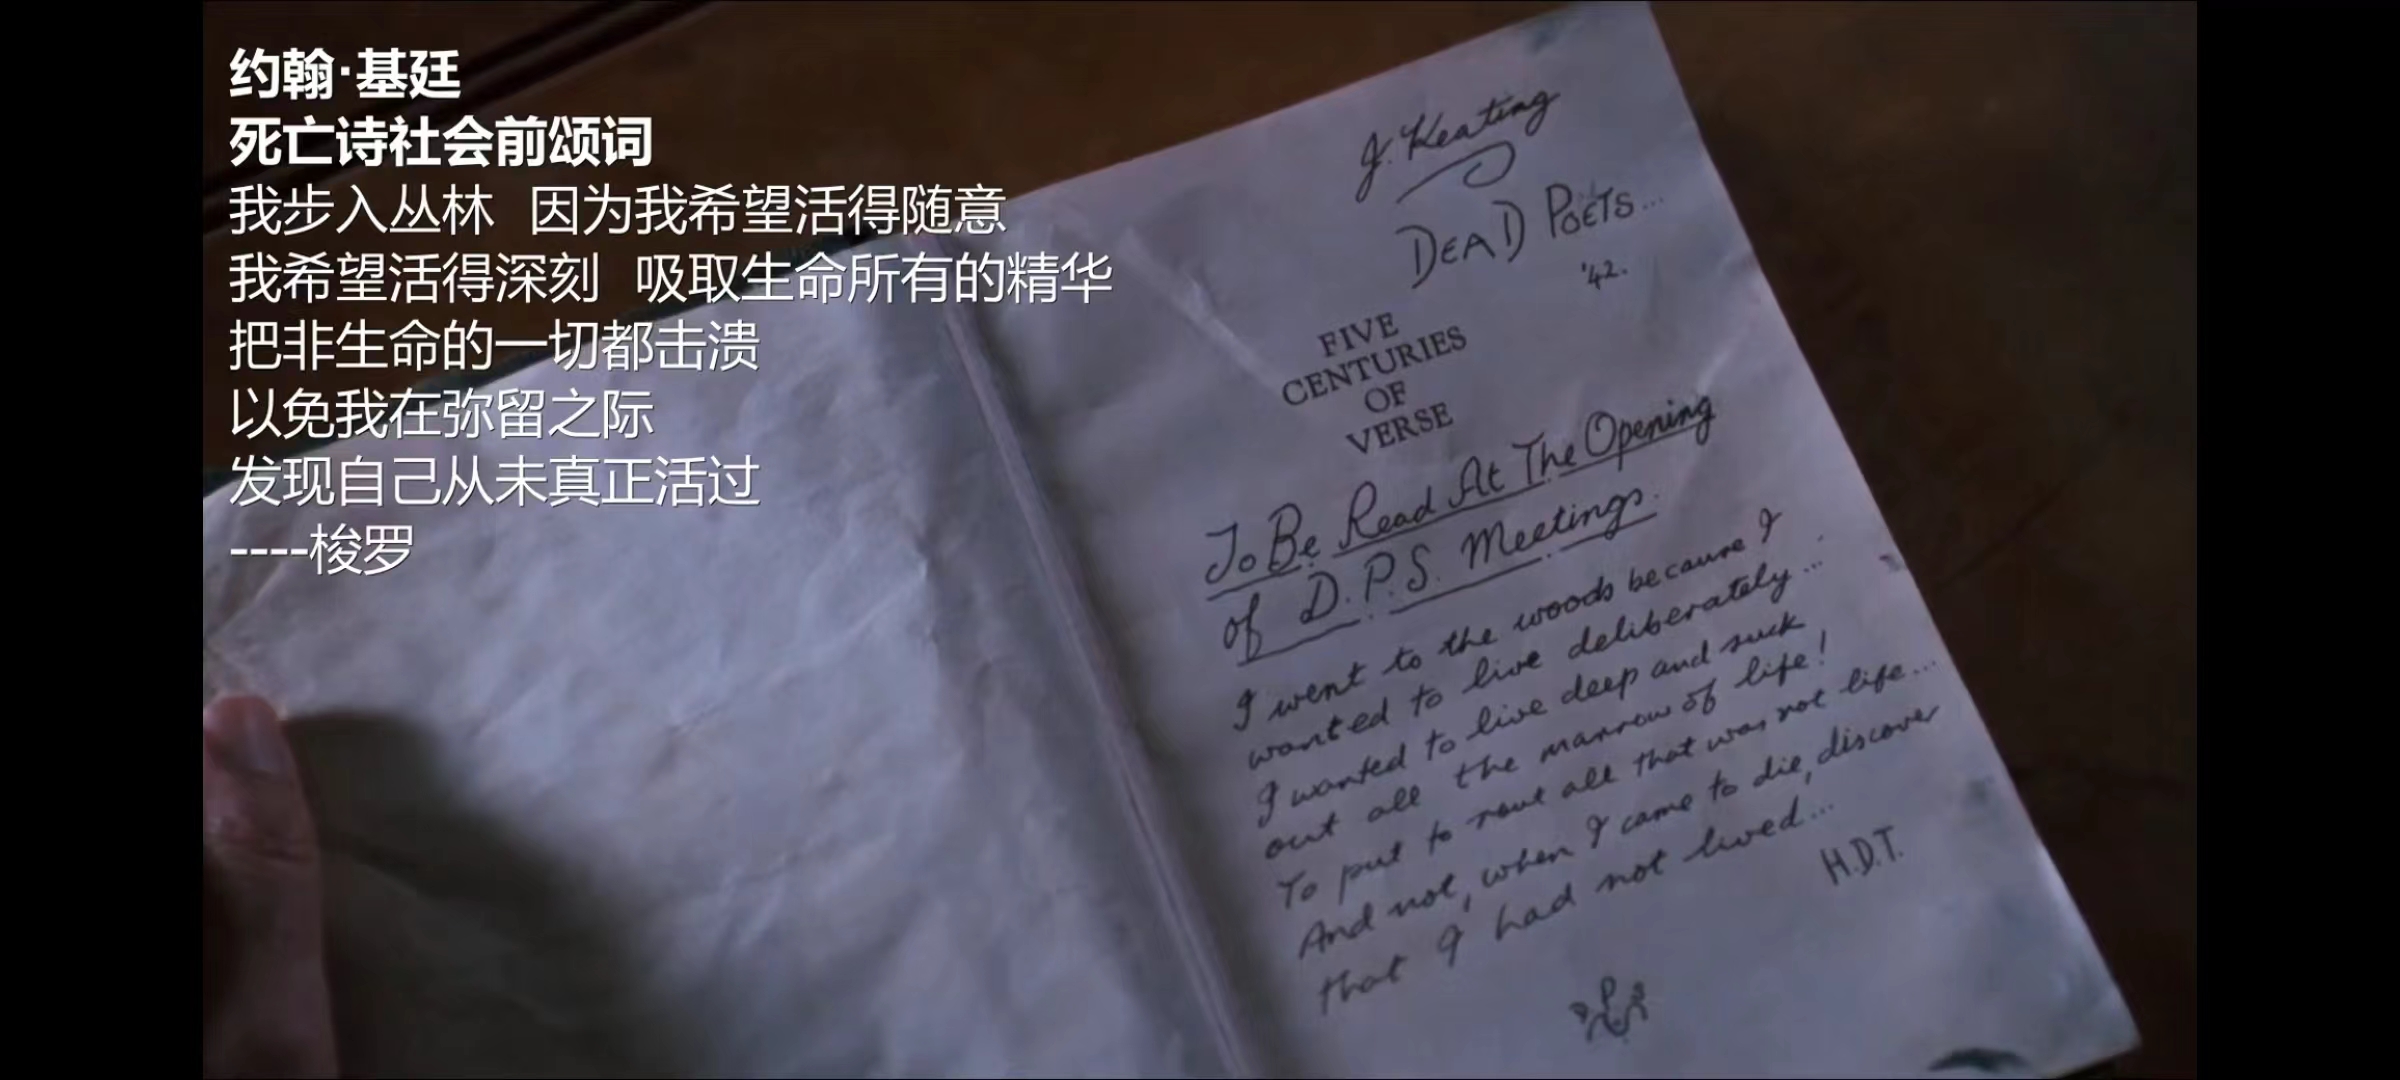 约翰·基廷
死亡诗社会前颂词
我步入丛林 因为我希望活得随意
我希望活得深刻 吸取生命所有的精华
把非生命的一切都击溃
以免我在弥留之际
发现自己从未真正活过
----梭罗
J. Keating
DEAD POETS...
'42.
FIVE
CENTURIES
OF
VERSE
To Be Read At The Opening
of D.P.S. Meetings.
I went to the woods because I
wanted to live deliberately...
I wanted to live deep and suck
out all the marrow of life!
To put to rout all that was not life...
And not, when I came to die, discover
that I had not lived...
H.D.T.
D P S